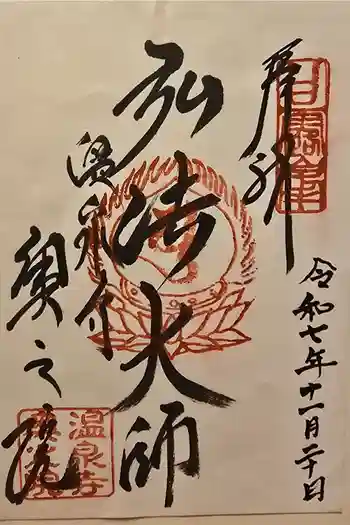 奉拝
令和七年十一月二十日
弘法大師
温泉寺
奥之院